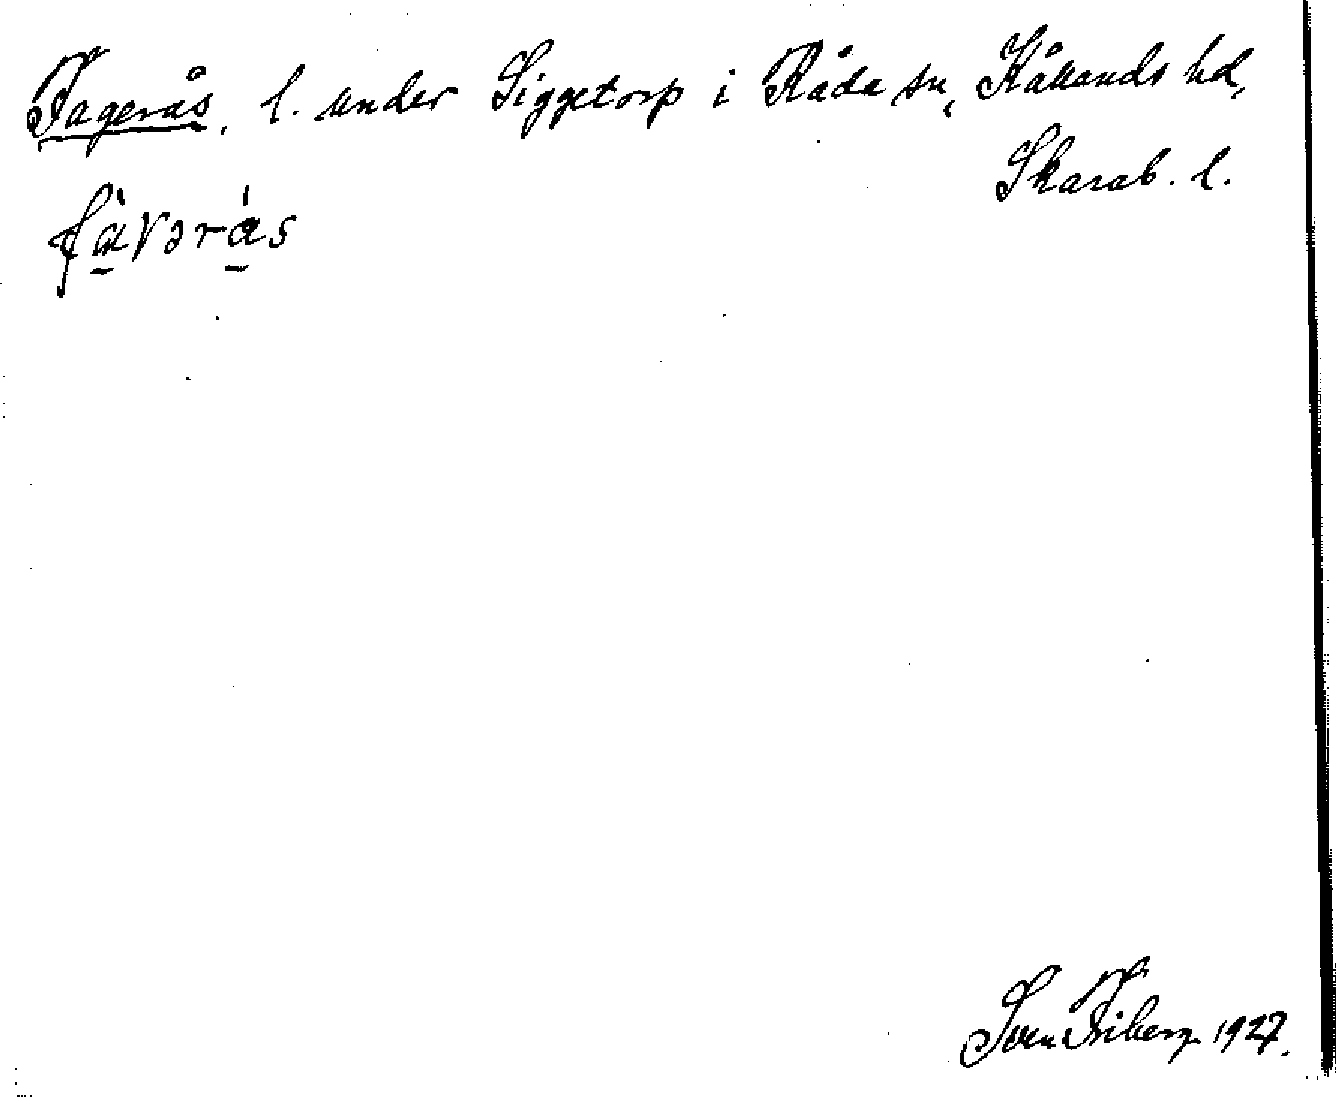 Fagerås, l. under Siggetorp i Råda sn, Kållands hd,
Skarab. l.
fàvərás
Sven Friberg 1927.